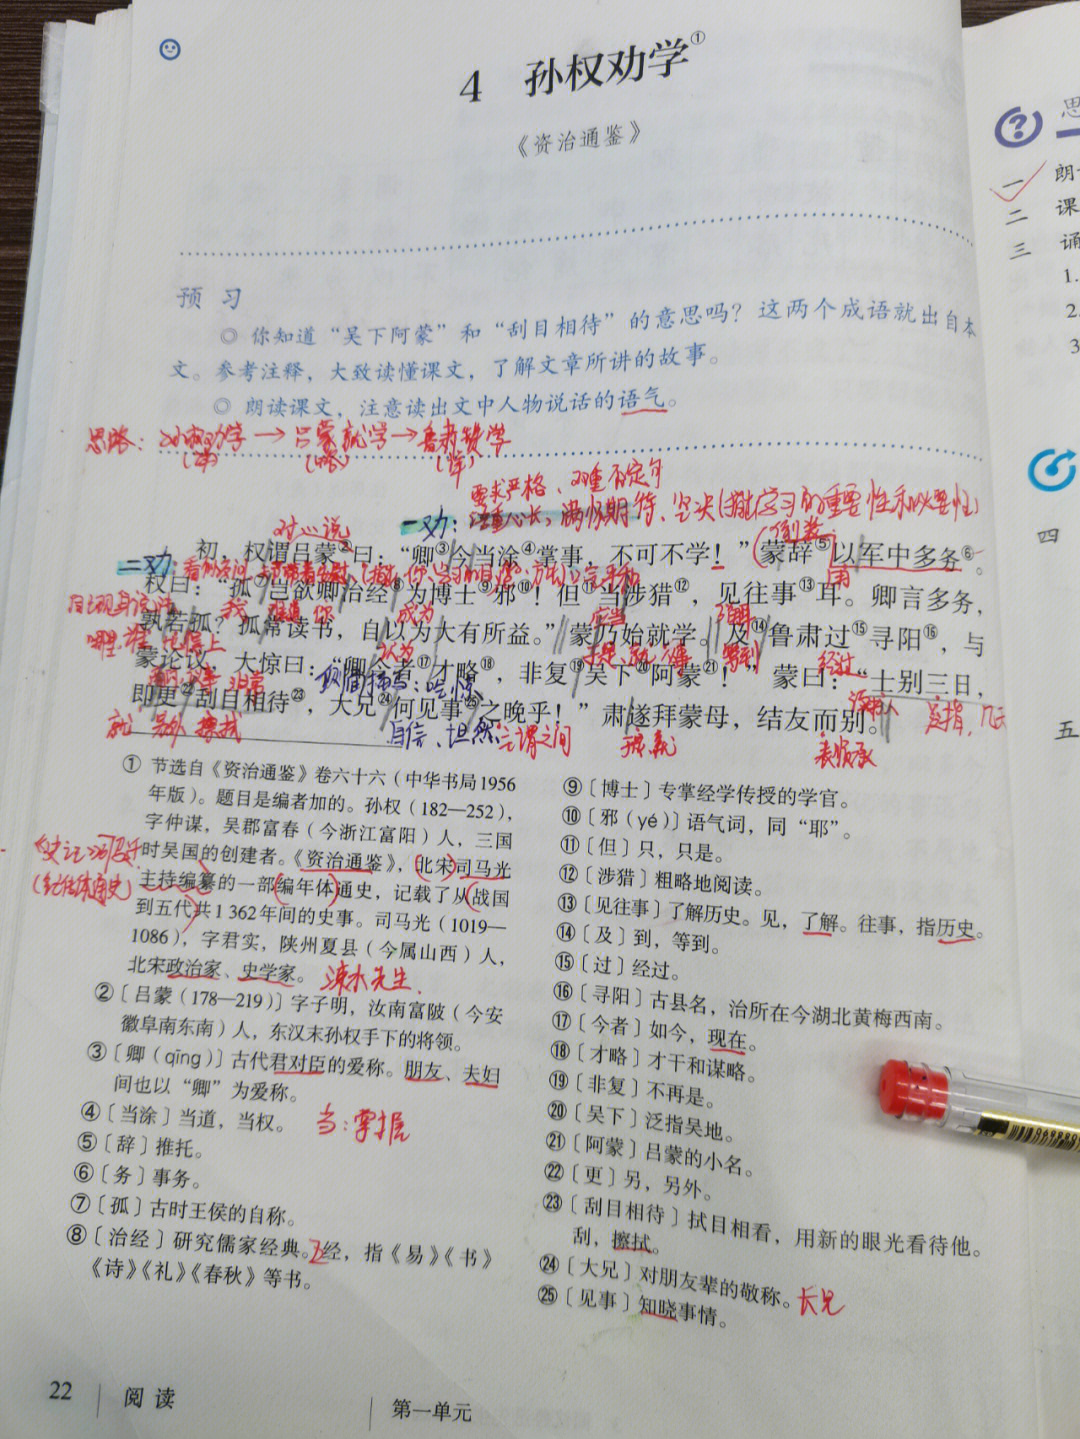 4 孙权劝学①
《资治通鉴》
预 习
◎ 你知道“吴下阿蒙”和“刮目相待”的意思吗？这两个成语就出自本
文。参考注释，大致读懂课文，了解文章所讲的故事。
◎ 朗读课文，注意读出文中人物说话的语气。
思路：孙权劝学→吕蒙就学→鲁肃赞学
(详) (略) (详)
要求严格、双重否定句
一劝：语重心长，满怀期待、坚决(指出学习的重要性和必要性)
对……说
初，权谓吕蒙②曰：“卿③今当涂④掌事，不可不学！”蒙辞⑤以军中多务⑥。
二劝：
用
权曰：“孤⑦岂欲卿治经⑧为博士⑨邪⑩！但⑪当涉猎⑫，见往事⑬耳。卿言多务，
我 难道 你 成为 应当
孰若孤？孤常读书，自以为大有所益。”蒙乃始就学。及⑭鲁肃过⑮寻阳⑯，与
认为 于是 经过
蒙论议，大惊曰：“卿今者⑰才略⑱，非复⑲吴下⑳阿蒙㉑！”蒙曰：“士别三日，
非常
即更㉒刮目相待㉓，大兄㉔何见事㉕之晚乎！”肃遂拜蒙母，结友而别。
就 另外 擦拭 自信、坦然 主谓之间 于是，就 表顺承 泛指，几天
① 节选自《资治通鉴》卷六十六（中华书局1956
年版）。题目是编者加的。孙权（182—252），
字仲谋，吴郡富春（今浙江富阳）人，三国
时吴国的创建者。《资治通鉴》，北宋司马光
主持编纂的一部编年体通史，记载了从战国
到五代共1 362年间的史事。司马光（1019—
1086），字君实，陕州夏县（今属山西）人，
北宋政治家、史学家。 涑水先生
《史记》司马迁
(纪传体通史)
② 〔吕蒙（178—219）〕字子明，汝南富陂（今安
徽阜南东南）人，东汉末孙权手下的将领。
③ 〔卿（qīng）〕古代君对臣的爱称。朋友、夫妇
间也以“卿”为爱称。
④ 〔当涂〕当道，当权。 当：掌握
⑤ 〔辞〕推托。
⑥ 〔务〕事务。
⑦ 〔孤〕古时王侯的自称。
⑧ 〔治经〕研究儒家经典。经，指《易》《书》
《诗》《礼》《春秋》等书。
⑨ 〔博士〕专掌经学传授的学官。
⑩ 〔邪（yé）〕语气词，同“耶”。
⑪ 〔但〕只，只是。
⑫ 〔涉猎〕粗略地阅读。
⑬ 〔见往事〕了解历史。见，了解。往事，指历史。
⑭ 〔及〕到，等到。
⑮ 〔过〕经过。
⑯ 〔寻阳〕古县名，治所在今湖北黄梅西南。
⑰ 〔今者〕如今，现在。
⑱ 〔才略〕才干和谋略。
⑲ 〔非复〕不再是。
⑳ 〔吴下〕泛指吴地。
㉑ 〔阿蒙〕吕蒙的小名。
㉒ 〔更〕另，另外。
㉓ 〔刮目相待〕拭目相看，用新的眼光看待他。
刮，擦拭。
㉔ 〔大兄〕对朋友辈的敬称。 长兄
㉕ 〔见事〕知晓事情。
22 阅 读 第一单元
思
一 朗
二 课
三 诵
1.
2.
3
四
五